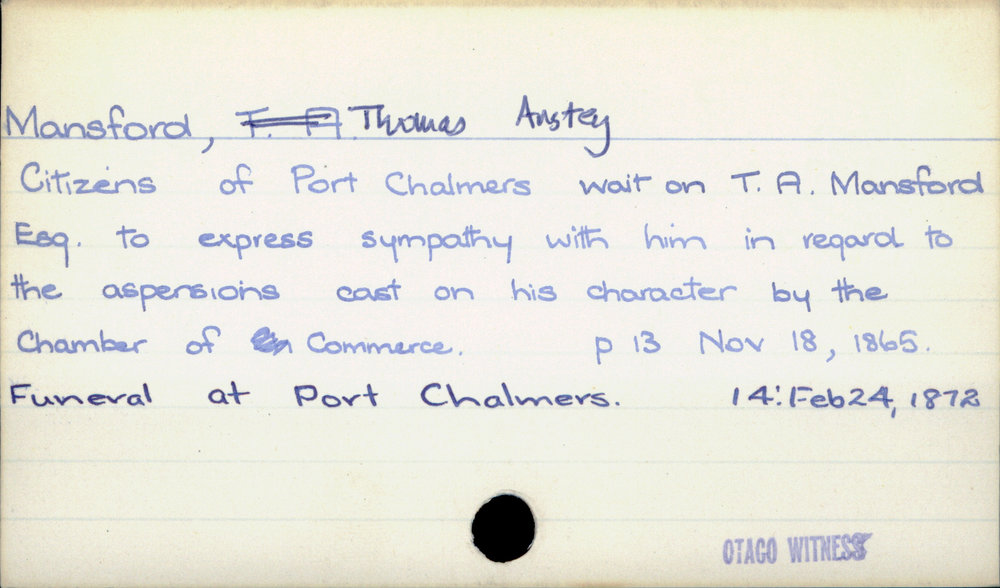 Mansford, T. A. Thomas Anstey
Citizens of Port Chalmers wait on T. A. Mansford
Esq. to express sympathy with him in regard to
the aspersions cast on his character by the
Chamber of Commerce. p 13 Nov 18, 1865.
Funeral at Port Chalmers. 14: Feb 24, 1872
OTAGO WITNESS